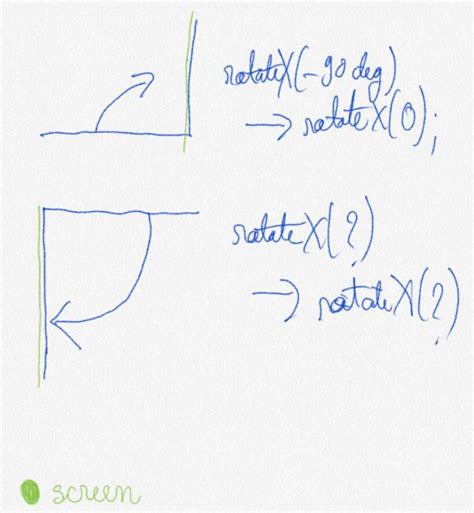 rotateX(-90 deg)
→ rotateX(0);
rotateX(?)
→ rotateX(?)
screen